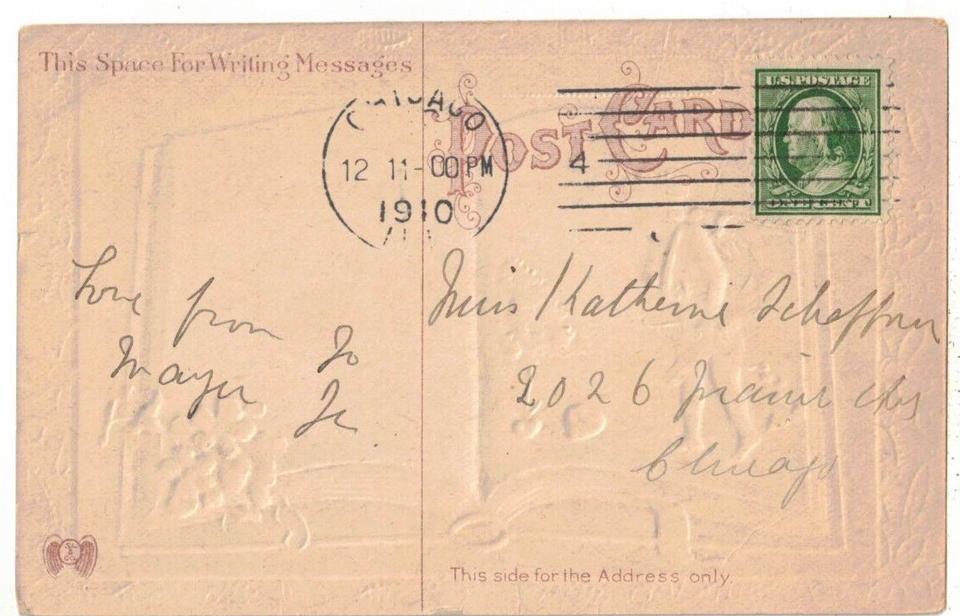 This Space For Writing Messages
POST CARD
U.S. POSTAGE
ONE CENT
CHICAGO
12 11-00 PM
1910
4
Love from
Mayer
Miss Katherine Schaffner
2026 Prairie Av
Chicago
This side for the Address only.